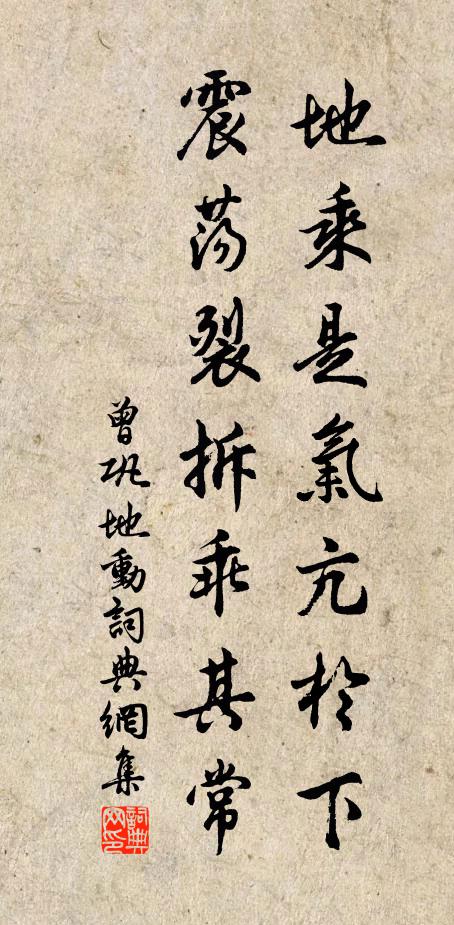 地乘是氣亢於下
震蕩裂拆乖其常
曾巩地動詞典網集
詞典网印